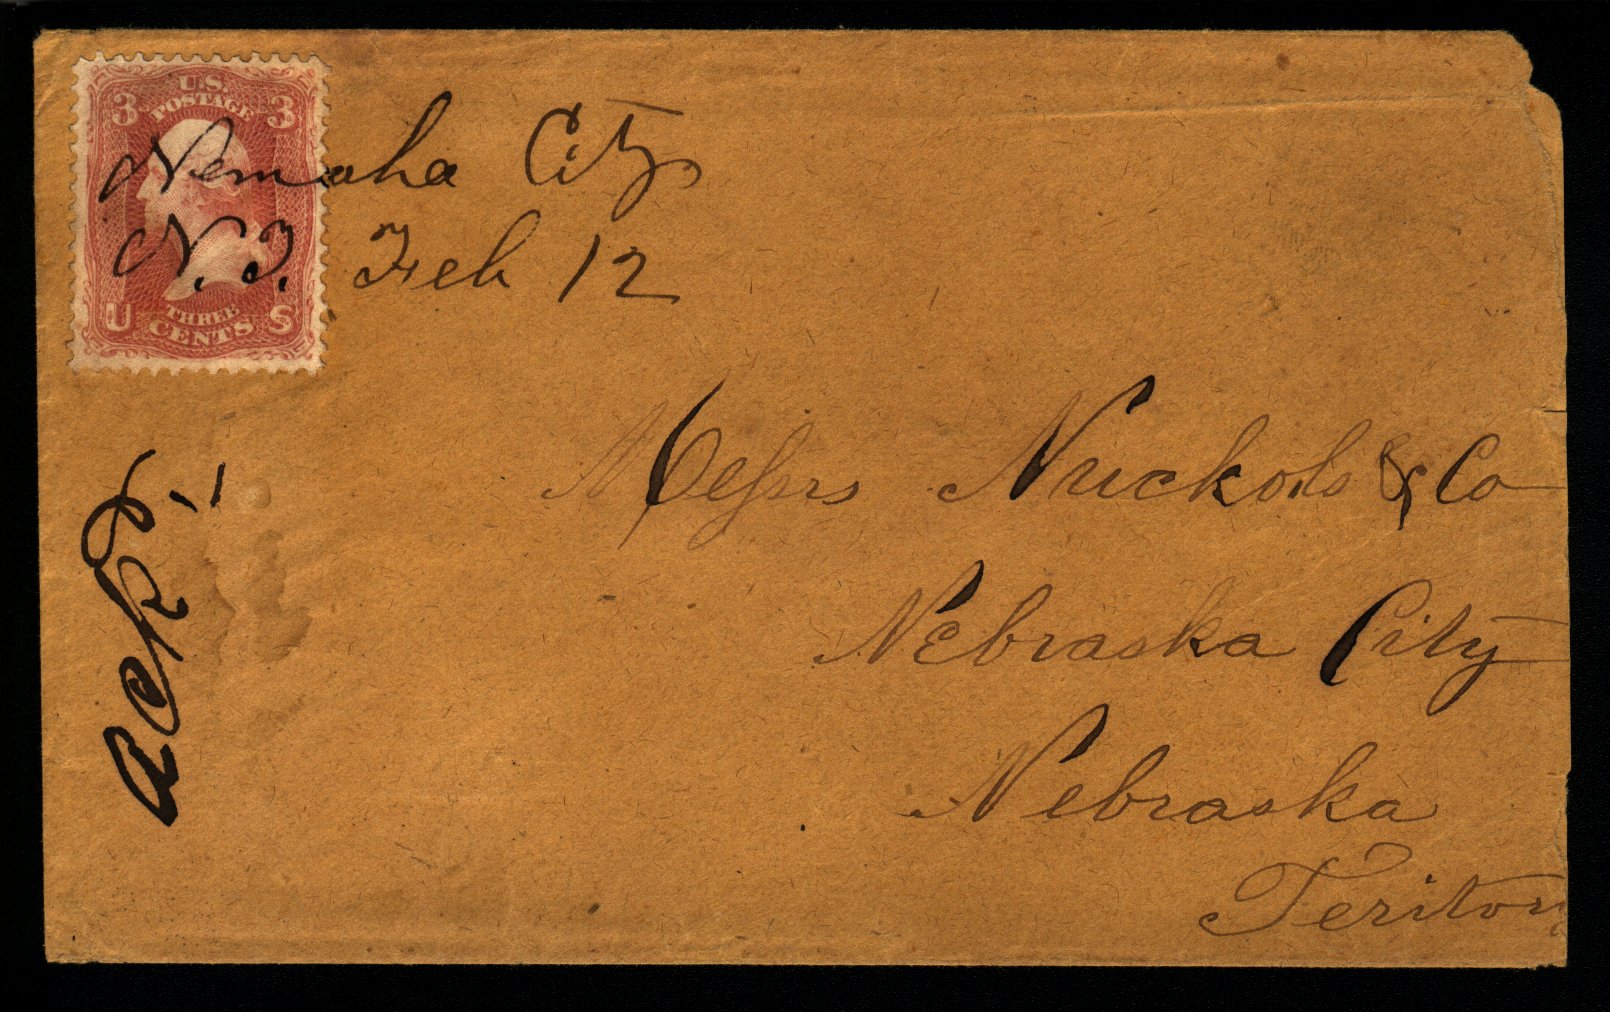 U.S.
POSTAGE
3 3
Nemaha City
N.T. Feb 12
THREE
CENTS
U S
ack,
Messrs Nuckols & Co
Nebraska City
Nebraska
Teritory